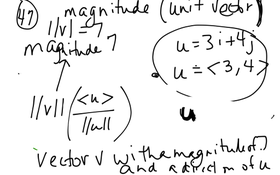 47 magnitude (unit vector)
||v|| = 7
magnitude 7
u = 3i + 4j
u = <3, 4>
||v|| (<u> / ||u||)
u
vector v with a magnitude of 7
and a direction of u